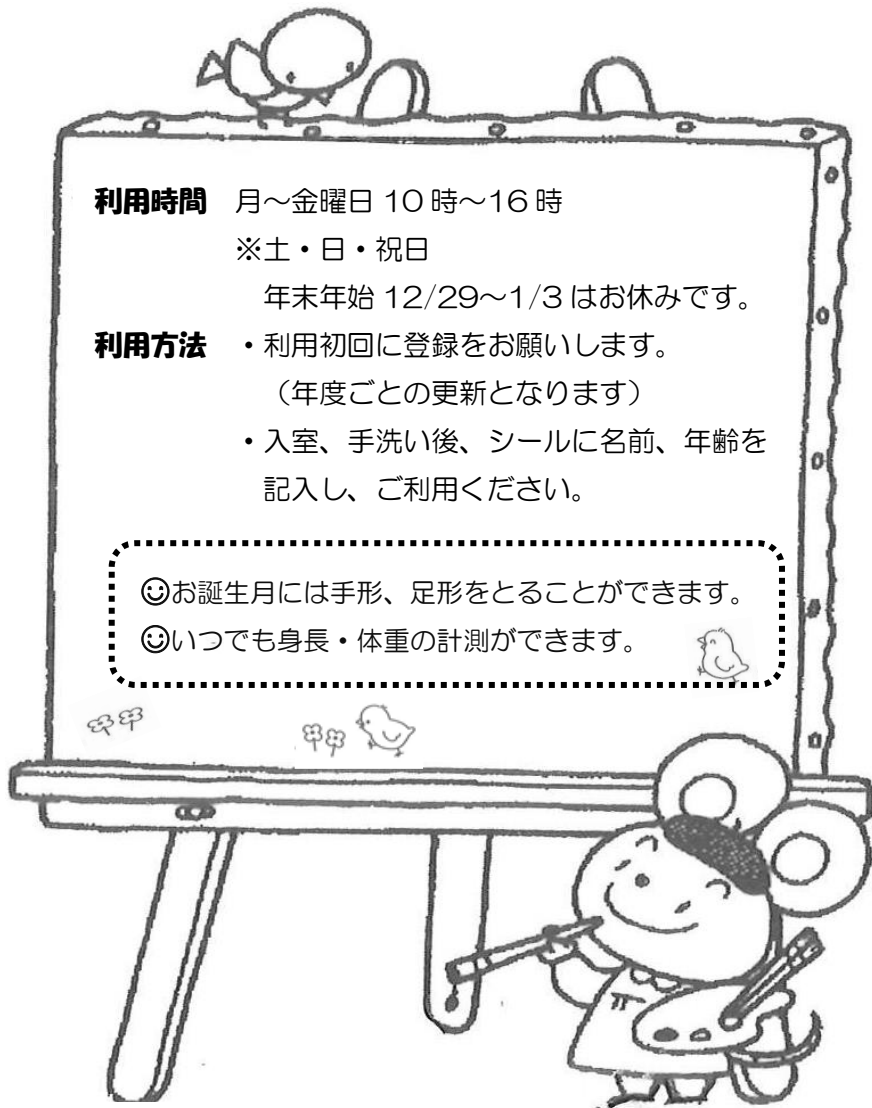 利用時間 月～金曜日 10時～16時
※土・日・祝日
年末年始 12/29～1/3 はお休みです。
利用方法 ・利用初回に登録をお願いします。
（年度ごとの更新となります）
・入室、手洗い後、シールに名前、年齢を
記入し、ご利用ください。
☺お誕生月には手形、足形をとることができます。
☺いつでも身長・体重の計測ができます。